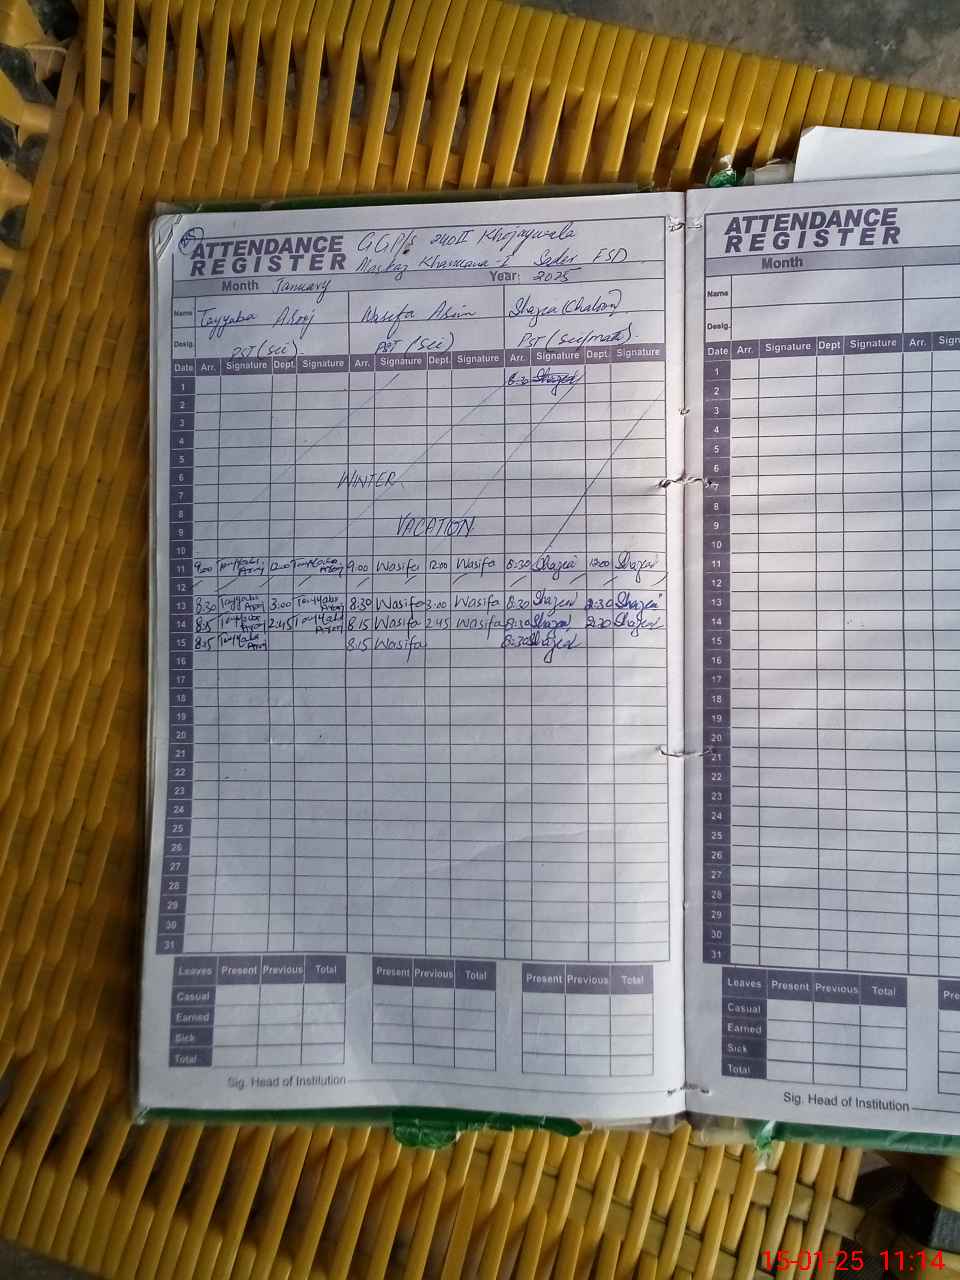 ATTENDANCE REGISTER
GGP/S 240 II Khojaywala
Markaz Khanuana-I Sader FSD.
Month January Year: 2025
Name Tayyaba Asim Wasifa Asim Shazia Khatoon
Desig. PST (Sci) PST (Sci) PST (Sci/math)
Date Arr. Signature Dept. Signature Arr. Signature Dept. Signature Arr. Signature Dept. Signature
1 8:30 Shazia
2
3
4
5
6 WINTER
7
8
9 VACATION
10
11 9:00 Tayyaba 12:00 Tayyaba 9:00 Wasifa 12:00 Wasifa 8:30 Shazia 12:00 Shazia
12
13 8:30 Tayyaba 3:00 Tayyaba 8:30 Wasifa 3:00 Wasifa 8:30 Shazia 2:30 Shazia
14 8:15 Tayyaba 2:45 Tayyaba 8:15 Wasifa 2:45 Wasifa 8:30 Shazia 2:30 Shazia
15 8:15 Tayyaba 8:15 Wasifa 8:30 Shazia
16
17
18
19
20
21
22
23
24
25
26
27
28
29
30
31
Leaves Present Previous Total Present Previous Total Present Previous Total
Casual
Earned
Sick
Total
Sig. Head of Institution
ATTENDANCE REGISTER
Month
Name
Desig.
Date Arr. Signature Dept Signature Arr.
1
2
3
4
5
6
7
8
9
10
11
12
13
14
15
16
17
18
19
20
21
22
23
24
25
26
27
28
29
30
31
Leaves Present Previous Total
Casual
Earned
Sick
Total
Sig. Head of Institution
15-01-25 11:14